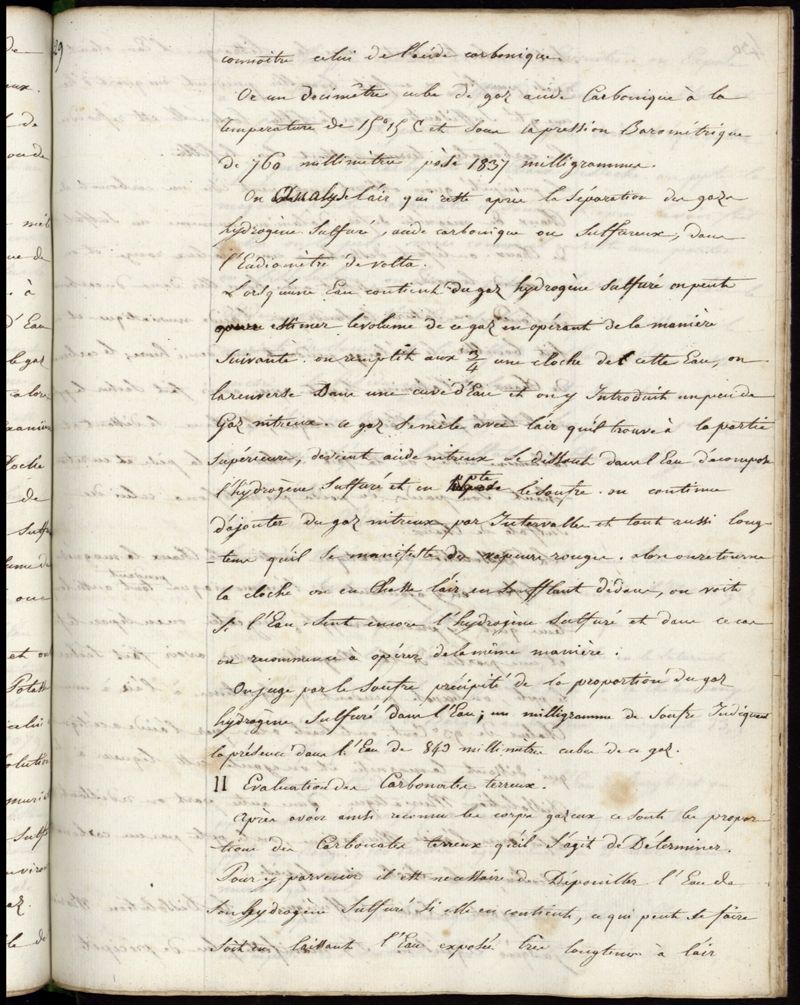 connoitre celui de l'acide carbonique
Or un decimètre cube de gaz acide Carbonique à la
temperature de 15°15 C et sous la pression Barométrique
de 760 millimètres pèse 1837 milligrammes.
On Analyse l'air qui reste après la séparation des gaz
hydrogène Sulfuré, acide carbonique ou Sulfureux, dans
l'Eudiomètre de volta.
Lorsqu'une Eau contient du gaz hydrogène sulfuré on peut
estimer le volume de ce gaz en opérant de la manière
Suivante. on remplit aux 3/4 une cloche de cette Eau, on
la renverse Dans une cuve d'Eau et on y Introduit un peu de
Gaz nitreux. ce gaz se mêle avec l'air qu'il trouve à la partie
Supérieure, devient acide nitreux se dissout dans l'Eau décompose
l'hydrogène Sulfuré et en ppte le soufre. on continue
d'ajouter du gaz nitreux par Intervalles et tout aussi long-
-tems qu'il se manifeste des vapeurs rouges. alors on retourne
la cloche on en chasse l'air en soufflant dedans, on voit
si l'Eau sent encore l'hydrogène sulfuré et dans ce cas
on recommence à opérer de la même manière.
On juge par le Soufre précipité de la proportion du gaz
hydrogène Sulfuré dans l'Eau; un milligramme de Soufre Indiquant
la présence dans l'Eau de 845 millimètres cubes de ce gaz.
11 Evaluation des Carbonates terreux.
Après avoir ainsi reconnu les corps gazeux ce sont les propor-
tions des Carbonates terreux qu'il s'agit de Déterminer.
Pour y parvenir il est necessaire de Dépouiller l'Eau de
son hydrogène Sulfuré si elle en contient, ce qui peut se faire
soit en laissant l'Eau exposée très longtems à l'air